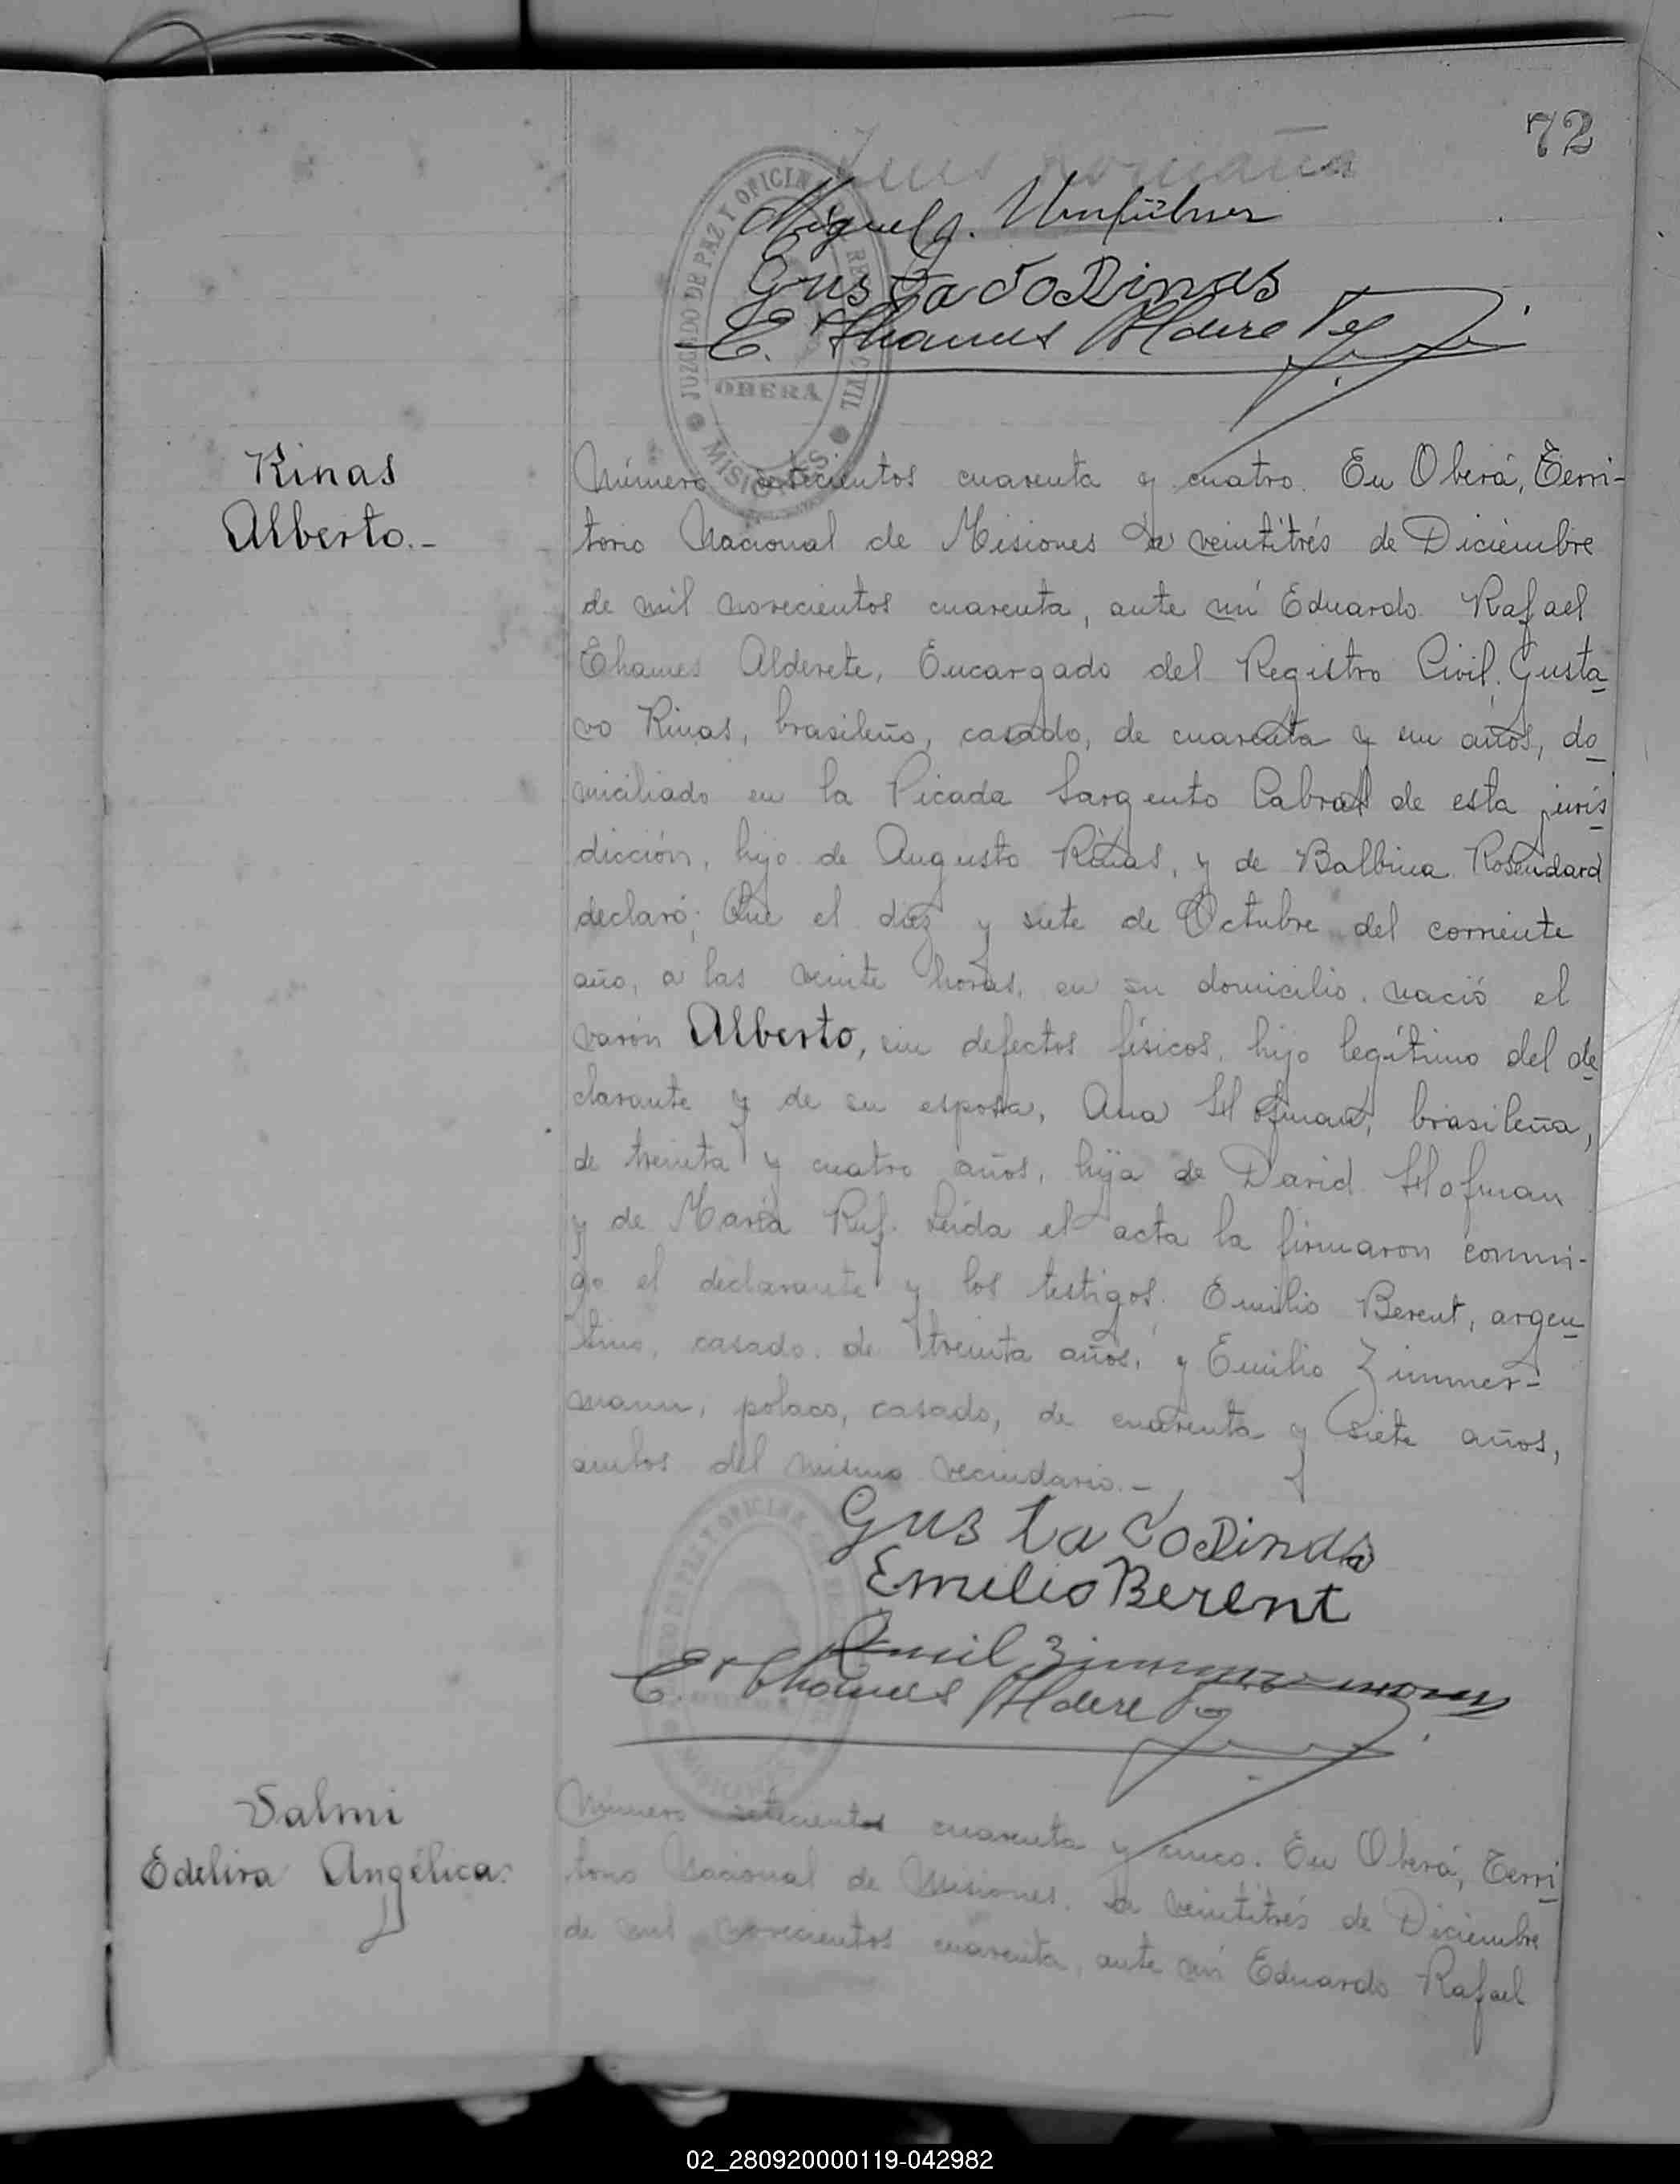 72
Miguel
Gustavo Rinas
E. Thames Alderete
JUZGADO DE PAZ Y OFICINA DEL REG. CIVIL
OBERÁ
MISIONES
Rinas
Alberto.-
Número setecientos cuarenta y cuatro. En Oberá, Terri-
torio Nacional de Misiones a veintitrés de Diciembre
de mil novecientos cuarenta, ante mí Eduardo Rafael
Thames Alderete, Encargado del Registro Civil, Gusta-
vo Rinas, brasileño, casado, de cuarenta y un años, do-
miciliado en la Picada Sargento Cabral de esta juris-
dicción, hijo de Augusto Rinas, y de Balbina Rosendard
declaró; Que el diez y siete de Octubre del corriente
año, a las veinte horas, en su domicilio, nació el
varón Alberto, sin defectos físicos, hijo legítimo del de-
clarante y de su esposa, Ana Hofman, brasileña,
de treinta y cuatro años, hija de David Hofman
y de María Ruf. Leída el acta la firmaron conmi-
go el declarante y los testigos. Emilio Berent, argen-
tino, casado, de treinta años, y Emilio Zimmer-
mann, polaco, casado, de cuarenta y siete años,
ambos del mismo vecindario.-
Gustavo Rinas
Emilio Berent
Emil Zimmermann
E. Thames Alderete
Valmi
Edelira Angélica.
Número setecientos cuarenta y cinco. En Oberá, Terri-
torio Nacional de Misiones, a veintitrés de Diciembre
de mil novecientos cuarenta, ante mí Eduardo Rafael
02_280920000119-042982